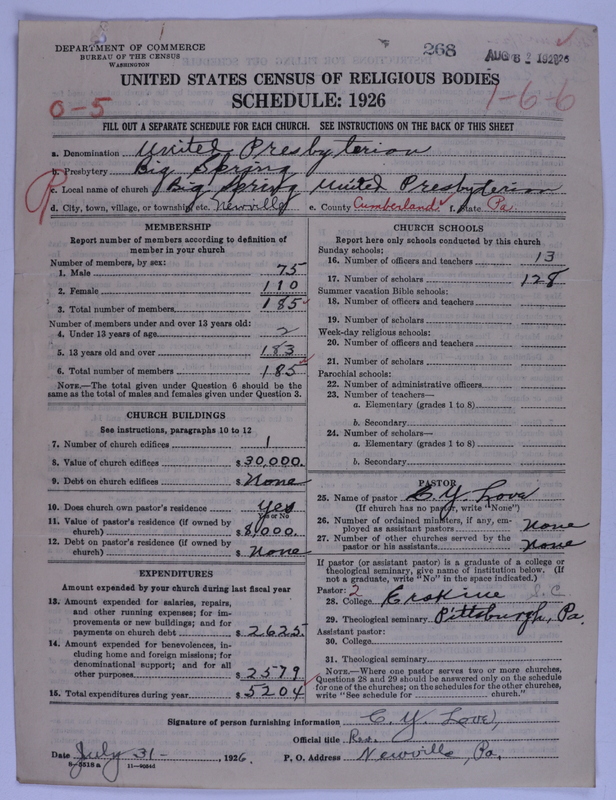 268
AUG 2 1926
DEPARTMENT OF COMMERCE
BUREAU OF THE CENSUS
WASHINGTON
UNITED STATES CENSUS OF RELIGIOUS BODIES
SCHEDULE: 1926
0-5
1-6-6
FILL OUT A SEPARATE SCHEDULE FOR EACH CHURCH. SEE INSTRUCTIONS ON THE BACK OF THIS SHEET
a. Denomination United Presbyterian
b. Presbytery Big Spring
c. Local name of church Big Spring United Presbyterian
d. City, town, village, or township, etc. Newville e. County Cumberland f. State Pa.
MEMBERSHIP
Report number of members according to definition of
member in your church
Number of members, by sex:
1. Male 75
2. Female 110
3. Total number of members 185
Number of members under and over 13 years old:
4. Under 13 years of age 2
5. 13 years old and over 183
6. Total number of members 185
NOTE.—The total given under Question 6 should be the
same as the total of males and females given under Question 3.
CHURCH BUILDINGS
See instructions, paragraphs 10 to 12
7. Number of church edifices 1
8. Value of church edifices $ 30,000.
9. Debt on church edifices $ None
10. Does church own pastor's residence yes
Yes or No
11. Value of pastor's residence (if owned by
church) $ 8,000.
12. Debt on pastor's residence (if owned by
church) $ None
EXPENDITURES
Amount expended by your church during last fiscal year
13. Amount expended for salaries, repairs,
and other running expenses; for im-
provements or new buildings; and for
payments on church debt $ 2625
14. Amount expended for benevolences, in-
cluding home and foreign missions; for
denominational support; and for all
other purposes $ 2579
15. Total expenditures during year $ 5204
CHURCH SCHOOLS
Report here only schools conducted by this church
Sunday schools:
16. Number of officers and teachers 13
17. Number of scholars 128
Summer vacation Bible schools:
18. Number of officers and teachers
19. Number of scholars
Week-day religious schools:
20. Number of officers and teachers
21. Number of scholars
Parochial schools:
22. Number of administrative officers
23. Number of teachers—
a. Elementary (grades 1 to 8)
b. Secondary
24. Number of scholars—
a. Elementary (grades 1 to 8)
b. Secondary
PASTOR
25. Name of pastor C. Y. Love
(If church has no pastor, write "None")
26. Number of ordained ministers, if any, em-
ployed as assistant pastors None
27. Number of other churches served by the
pastor or his assistants None
If pastor (or assistant pastor) is a graduate of a college or
theological seminary, give name of institution below. (If
not a graduate, write "No" in the space indicated.)
Pastor: 2
28. College Erskine S.C
29. Theological seminary Pittsburgh, Pa.
Assistant pastor:
30. College
31. Theological seminary
NOTE.—Where one pastor serves two or more churches,
Questions 28 and 29 should be answered only on the schedule
for one of the churches; on the schedules for the other churches,
write "See schedule for church."
Signature of person furnishing information C. Y. Love,
Official title Rev.
Date July 31- , 1926. P. O. Address Newville, Pa.